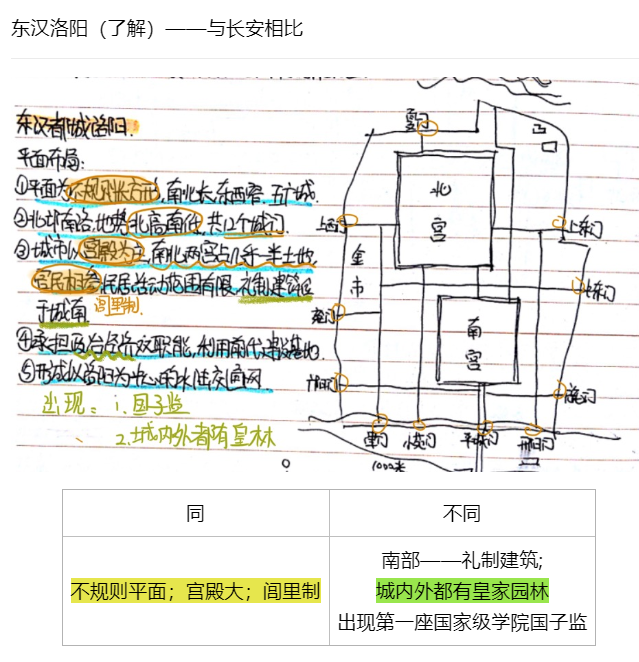 东汉洛阳（了解）——与长安相比
东汉都城洛阳.
平面布局:
①平面为不规则长方形,南北长,东西窄.
②北邙南洛,地势北高南低,共12个城门.
③城市以宫殿为主,南北两宫占几乎一半土地,
官民相参,民居活动范围有限,礼制建筑位
于城南.
闾里制.
④承担政治经济双职能,利用前代
⑤形成以洛阳为中心的水陆交通网
出现: 1.国子监
2.城内外都有皇林
夏门
北宫
上西门
上东门
金市
南宫
平城门
1000米
同
不同
不规则平面；宫殿大；闾里制
南部——礼制建筑;
城内外都有皇家园林
出现第一座国家级学院国子监